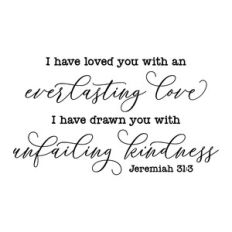 I have loved you with an
everlasting love
I have drawn you with
unfailing kindness
Jeremiah 31:3